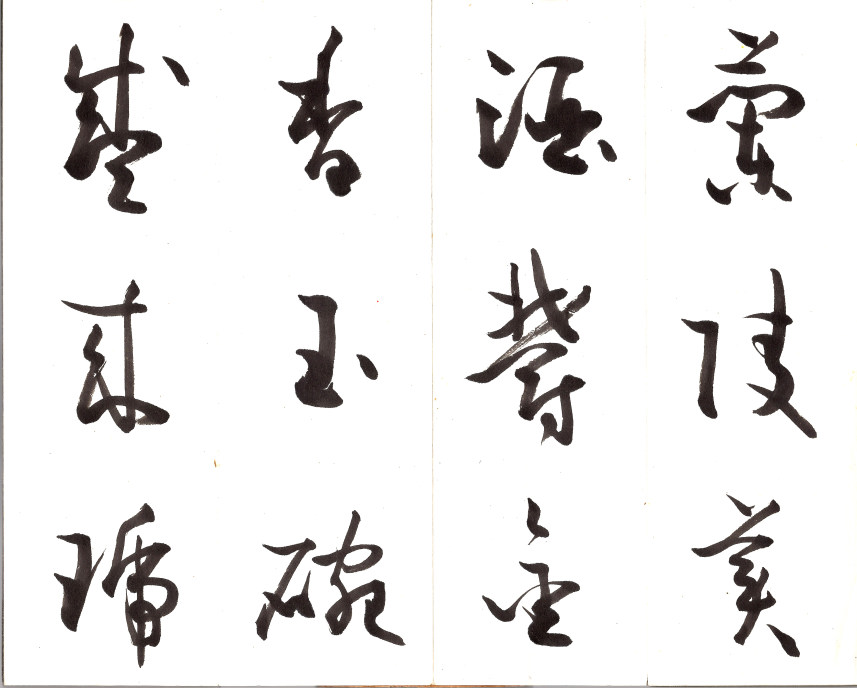 蘭陵美
酒鬱金
香玉碗
盛來琥